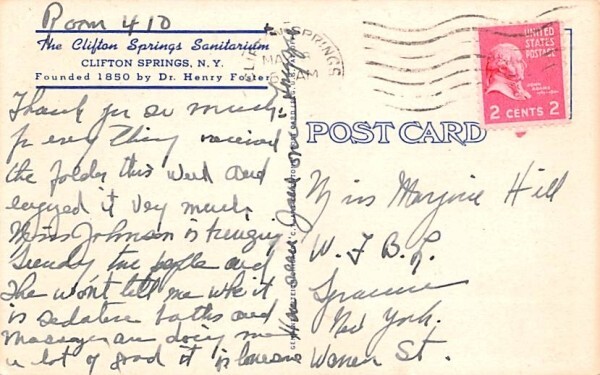 Room 410
The Clifton Springs Sanitarium
CLIFTON SPRINGS, N.Y.
Founded 1850 by Dr. Henry Foster
Thank you so much
for every thing received
the folder this week and
enjoyed it very much.
Miss Johnson is
the people and
She won't tell me who it
is sedative baths and
Massages are doing me
a lot of good it is lonesome
CLIFTON SPRINGS
AM
UNITED
STATES
POSTAGE
2 CENTS 2
POST CARD
Miss Marjorie Hill
W. F. B. L.
Syracuse
New York.
Warren St.